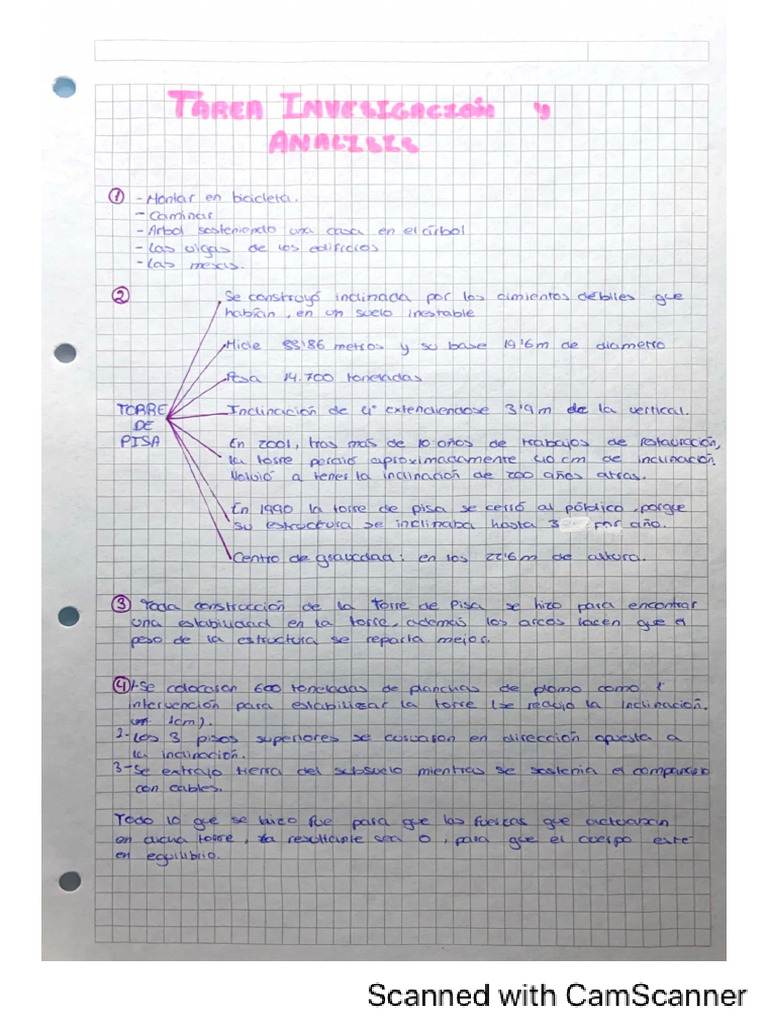 TAREA INVESIGACIÓN Y
ANALISIS
① -Montar en bicicleta.
-Caminar
-Arbol sosteniendo una casa en el árbol
-Las vigas de los edificios
-Las mesas.
②
Se construyó inclinada por los cimientos débiles que
habían, en un suelo inestable
Mide 55'86 metros y su base 19'6m de diametro
Pesa 14.700 toneladas
TORRE
DE
PISA
Inclinación de 4° extendiendose 3'9m de la vertical.
En 2001, tras más de 10 años de trabajos de restauración,
la torre perdió aproximadamente 40 cm de inclinación.
Volvió a tener la inclinación de 200 años atras.
En 1990 la torre de pisa se cerró al público, porque
su estructura se inclinaba hasta 3 por año.
Centro de gravedad: en los 22'6m de altura.
③ Toda construcción de la Torre de Pisa se hizo para encontrar
una estabilidad en la torre, además los arcos hacen que el
peso de la estructura se reparta mejor.
④ 1-Se colocaron 600 toneladas de planchas de plomo como 1ª
intervención para estabilizar la torre (se redujo la inclinación
1cm).
2-Los 3 pisos superiores se curvaron en dirección opuesta a
la inclinación.
3-Se extrajo tierra del subsuelo mientras se sostenia el campanario
con cables.
Todo lo que se hizo fue para que las fuerzas que actuaban
en dicha torre, la resultante sea 0, para que el cuerpo esté
en equilibrio.
Scanned with CamScanner